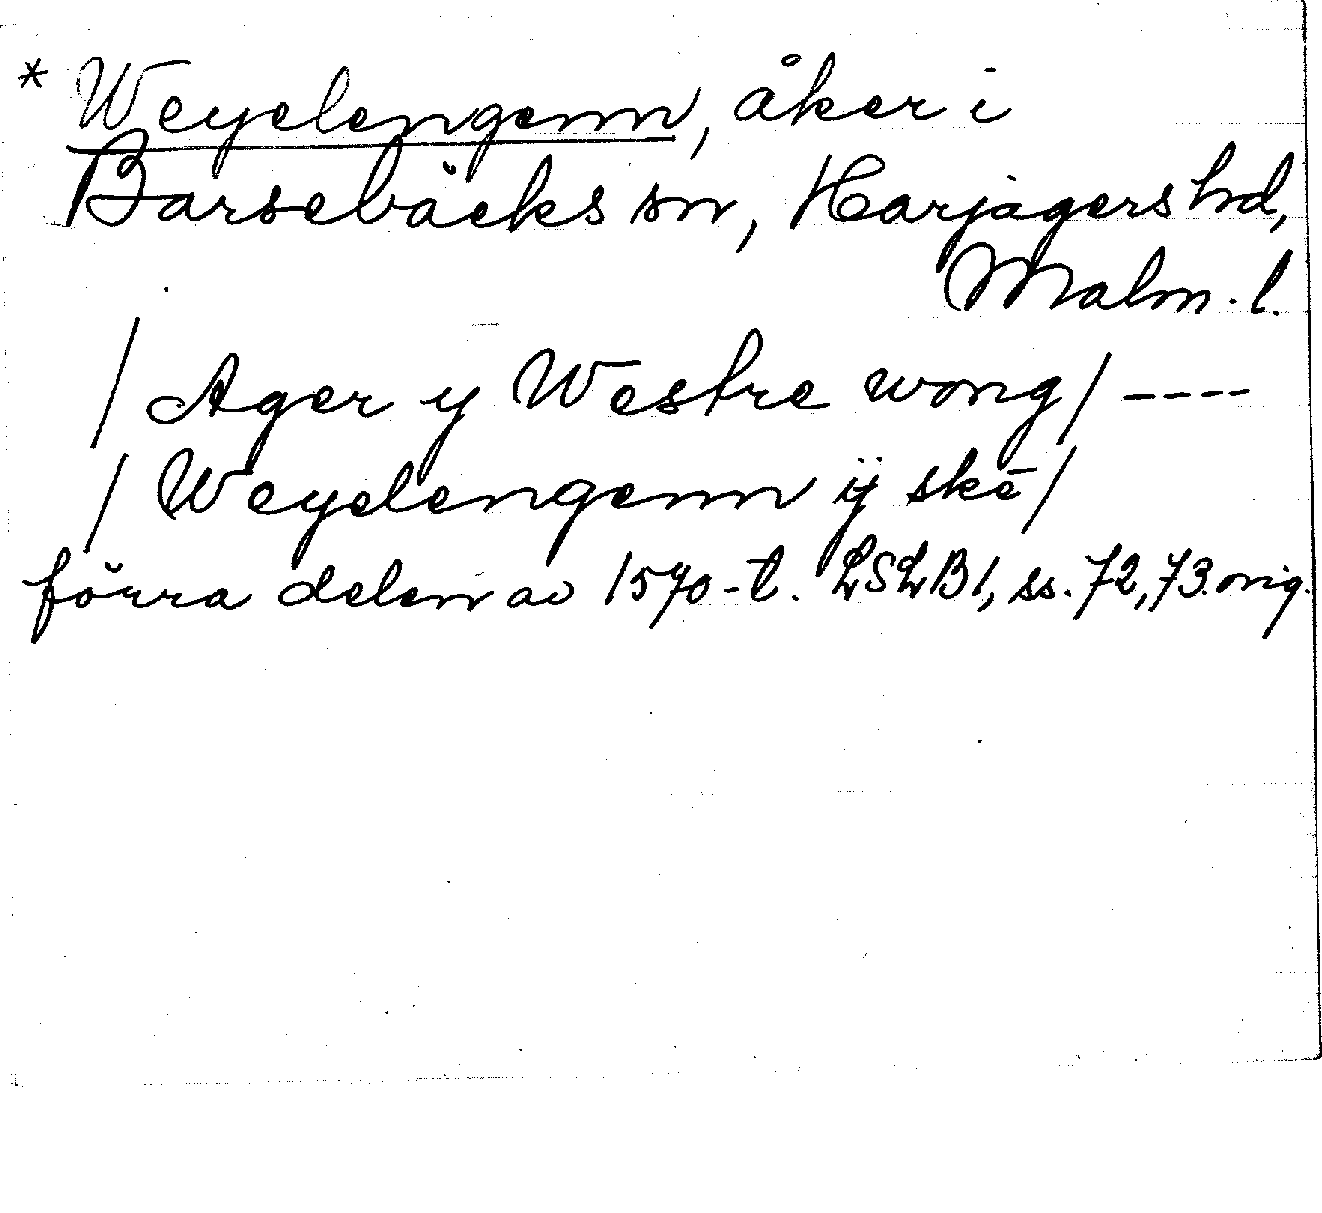 * Weyelengenn, åker i
Barsebäcks sn, Harjagers hd,
Malm. l.
/ Ager y Westre wong / ----
/ Weyelengenn ÿ skē /
förra delen av 1570-t. LSLB1, ss. 72, 73. orig.